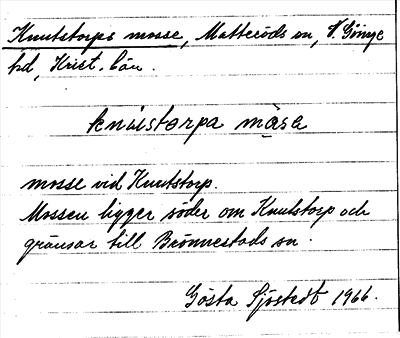 Knutstorps mosse, Matteröds sn, V. Göinge
hd, Krist. län.
knústorpa màsa
mosse vid Knutstorp.
Mossen ligger söder om Knutstorp och
gränsar till Brönnestads sn.
Gösta Sjöstedt 1966.